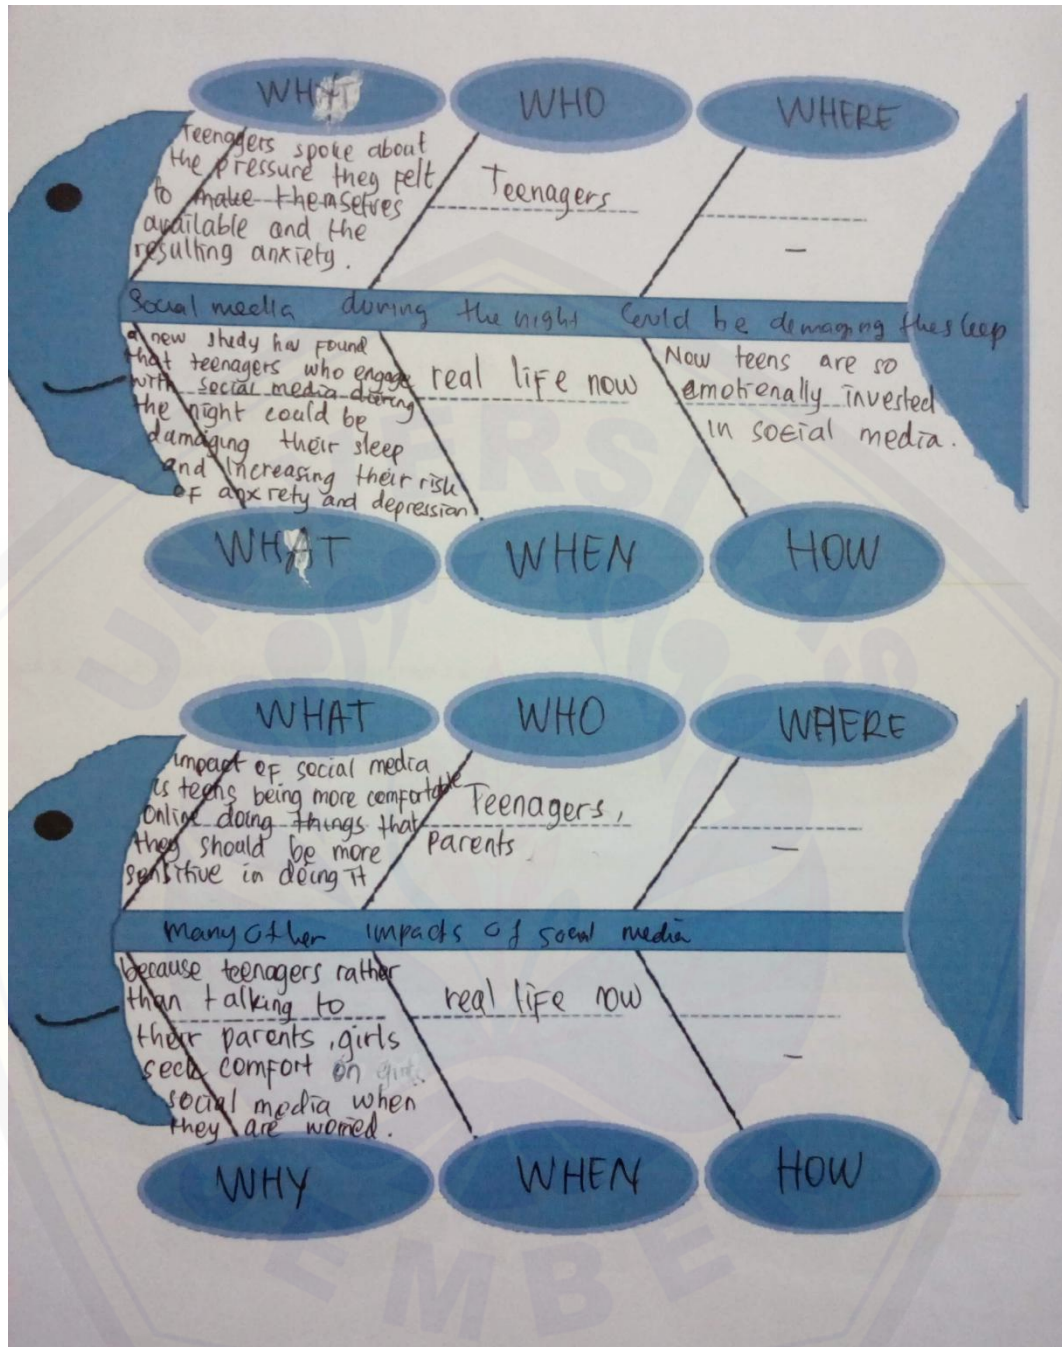 WHO
WHERE
Teenagers spoke about
the pressure they felt
to make themselves
available and the
resulting anxiety.
Teenagers
-
Social media during the night Could be demaging the sleep
a new study has found
that teenagers who engage
with social media during
the night could be
damaging their sleep
and increasing their risk
of anxiety and depression
real life now
Now teens are so
emotionally invested
in social media.
WHAT
WHEN
HOW
WHAT
WHO
WHERE
impact of social media
is teens being more comfortable
Online doing things that
they should be more
sensitive in doing it
Teenagers,
Parents
-
many other impacts of social media
because teenagers rather
than talking to
their parents, girls
seek comfort on
social media when
they are worried.
real life now
-
WHY
WHEN
HOW
UNIVERSITAS
JEMBER